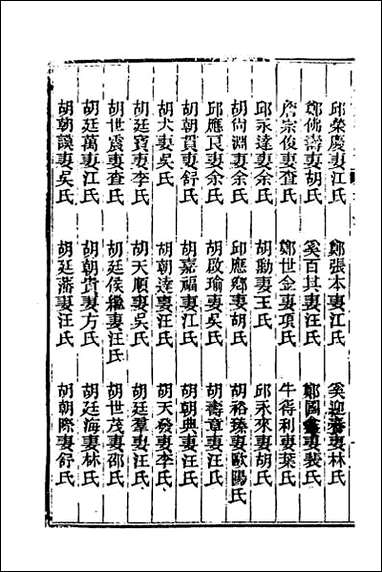 邱榮慶妻江氏 鄭張本妻江氏 奚迎妻林氏
鄭佛壽妻胡氏 奚百其妻汪氏 鄭國妻裴氏
詹宗俊妻查氏 鄭世金妻項氏 牛得利妻葉氏
邱永達妻余氏 胡勛妻王氏 邱永來妻胡氏
胡尙淵妻余氏 邱應鄉妻胡氏 胡裕臻妻歐陽氏
邱應良妻余氏 胡啟瑜妻吳氏 胡壽章妻汪氏
胡朝貫妻舒氏 胡嘉福妻江氏 胡朝典妻汪氏
胡大妻吳氏 胡朝達妻汪氏 胡天發妻李氏
胡廷寶妻李氏 胡天順妻吳氏 胡廷羣妻汪氏
胡世震妻查氏 胡廷侯繼妻汪氏 胡世茂妻邵氏
胡廷萬妻江氏 胡朝貴妻方氏 胡廷海妻林氏
胡朝謨妻吳氏 胡廷藩妻汪氏 胡朝際妻舒氏